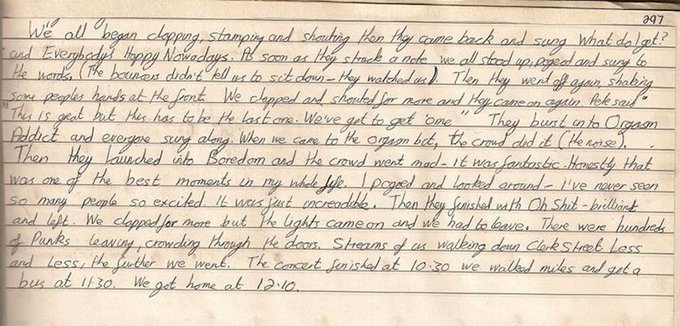 297
We all began clapping, stamping and shouting then they came back and sung What do I get?
and Everybodys Happy Nowadays. As soon as they struck a note we all stood up, pogoed and sung to
the words, (The bouncers didn't tell us to sit down - they watched us). Then they went off again, shaking
some peoples hands at the front. We clapped and shouted for more and they came on again. Pete said "
This is great but this has to be the last one. We've got to get 'one'" They burst into Orgasm
Addict and everyone sung along. When we came to the orgasm bit, the crowd did it (the noise).
Then they launched into Boredom and the crowd went mad - it was fantastic. Honestly that
was one of the best moments in my whole life. I pogoed and looked around - I've never seen
so many people so excited. It was just increadible. Then they finished with Oh Shit - brilliant
and left. We clapped for more but the lights came on and we had to leave. There were hundreds
of Punks leaving, crowding through the doors. Streams of us walking down Clerk Street Less
and Less, the further we went. The concert finished at 10.30 we walked miles and got a
bus at 11 30. We got home at 12.10.